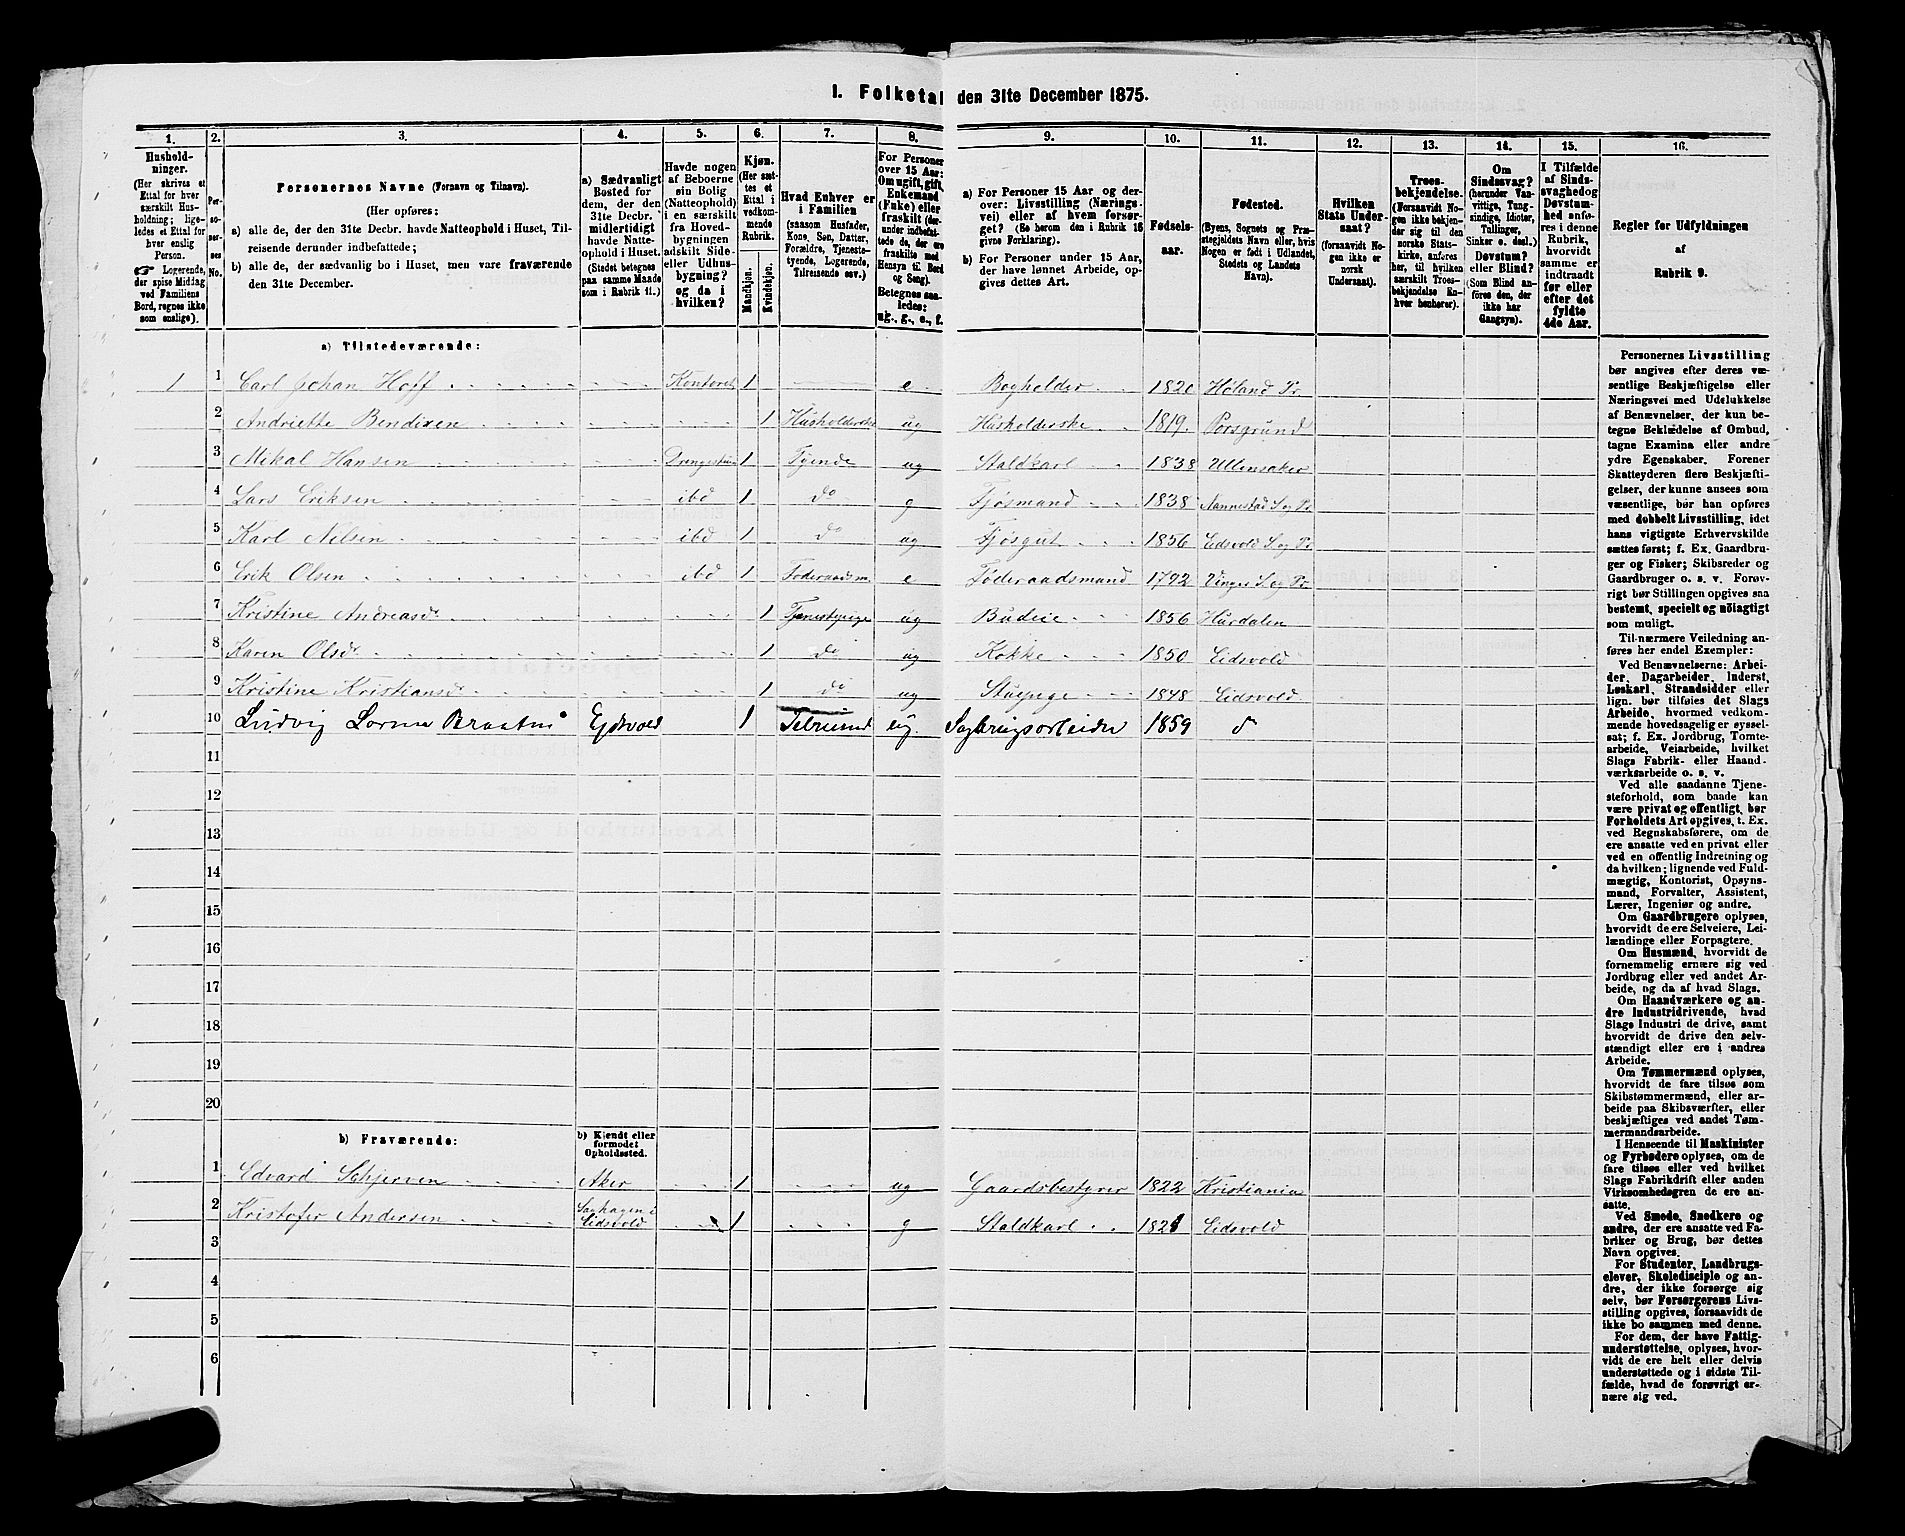 I. Folketal den 31te December 1875.
1. 2. 3. 4. 5. 6. 7. 8. 9. 10. 11. 12. 13. 14. 15. 16.
Husholdninger.
(Her skrives et
Ettal for hver
særskilt Husholdning;
ligeledes et Ettal for
hver enslig
Person.
☞ Logerende,
der spise Middag
ved Familiens
Bord, regnes ikke
som enslige).
Personernes No.
Personernes Navne (Fornavn og Tilnavn).
(Her opføres:
a) alle de, der den 31te Decbr. havde Natteophold i Huset, Tilreisende derunder indbefattede;
b) alle de, der sædvanlig bo i Huset, men vare fraværende
den 31te December.
a) Sædvanligt
Bosted for
dem, der den
31te Decbr.
midlertidigt
havde Natteophold i Huset.
(Stedet betegnes
paa samme Maade
som i Rubrik 11.)
Havde nogen
af Beboerne
sin Bolig
(Natteophold)
i en særskilt
fra Hovedbygningen
adskilt Side-
eller Udhusbygning?
og da i
hvilken?
Kjøn.
(Her sættes et
Ettal i
vedkommende
Rubrik.
Mandkjøn.
Kvindekjøn.
Hvad Enhver er
i Familien
(saasom Husfader,
Kone, Søn, Datter,
Forældre, Tjenestetyende, Logerende,
Tilreisende osv.)
For Personer
over 15 Aar:
Om ugift, gift,
Enkemand
(Enke) eller
fraskilt (derunder indbefattede de, der ere
fraskilte med
Hensyn til Bord
og Seng).
Betegnes saaledes:
ug., g., e., f.
a) For Personer 15 Aar og derover: Livsstilling (Næringsvei) eller af hvem forsørget? (Se herom den i Rubrik 16
givne Forklaring).
b) For Personer under 15 Aar,
der have lønnet Arbeide, opgives dettes Art.
Fødselsaar.
Fødested.
(Byens, Sognets og Præstegjeldets Navn eller, hvis
Nogen er født i Udlandet,
Stedets og Landets
Navn).
Hvilken
Stats Undersaat?
(forsaavidt Nogen ikke er
norsk
Undersaat).
Troesbekjendelse.
(Forsaavidt Nogen ikke bekjender sig til den
norske Statskirke, anføres
her, til hvilken
særskilt Troesbekjendelse Enhver henhører).
Om
Sindssvag?
(herunder Vanvittige, Tungsindige, Idioter,
Tullinger,
Sinker o. desl.)
Døvstum?
eller Blind?
(Som Blind anføres den, der
ikke har
Gangsyn).
I Tilfælde
af Sindssvaghed og
Døvstumhed anføres i denne
Rubrik,
hvorvidt
samme er
indtraadt
før eller
efter det
fyldte
4de Aar.
Regler for Udfyldningen
af
Rubrik 9.
a) Tilstedeværende:
1 1 Carl Johan Hoff Kontoret 1 e Bogholder 1820 Høland Pr
2 Andriette Bendixen 1 Husholderske ug Husholderske 1819. Porsgrund
3 Mikal Hansen Drengestuen 1 Tyende ug Staldkarl 1838 Ullensaker
4 Lars Eriksen ibd 1 do g Fjøsmand 1838 Nannestad S og Pr
5 Karl Nilsen ibd 1 do ug Fjøsgut 1856 Eidsvold S. og Pr
6 Erik Olsen ibd 1 Føderaadsm e Føderaadsmand 1792 Vinger S. og Pr
7 Kristine Andreasdr 1 Tjenestepige ug Budeie 1856 Hurdalen
8 Karen Olsdr 1 do ug Kokke 1850 Eidsvold
9 Kristine Kristiansdr 1 do ug Stuepige 1848 Eidsvold
10 Ludvig Braaten Eidsvold 1 ug. 1859
11
12
13
14
15
16
17
18
19
20
b) Fraværende:
b) Kjendt eller
formodet
Opholdssted.
1 Edvard Schjerven Aker 1 ug Gaardsbestyrer 1822 Kristiania
2 Kristofer Andersen Saghagen i Eidsvold 1 g Staldkarl Eidsvold
3
4
5
6
Personernes Livsstilling
bør angives efter deres væsentlige Beskjæftigelse eller
Næringsvei med Udelukkelse
af Benævnelser, der kun betegne Beklædelse af Ombud,
tagne Examina eller andre
ydre Egenskaber. Forener
Skatteyderen flere Beskjæftigelser, der kunne ansees som
væsentlige, bør han opføres
med dobbelt Livsstilling, idet
hans vigtigste Erhvervskilde
sættes først; f. Ex. Gaardbruger og Fisker; Skibsreder og
Gaardbruger o. s. v. Forøvrigt bør Stillingen opgives saa
bestemt, specielt og nøiagtigt
som muligt.
Til nærmere Veiledning anføres her endel Exempler:
Ved Benævnelserne: Arbeider, Dagarbeider, Inderst,
Løskarl, Strandsidder eller
lign. bør tilføies det Slags
Arbeide, hvormed vedkommende hovedsagelig er sysselsat; f. Ex. Jordbrug, Tomtearbeide, Veiarbeide, hvilket
Slags Fabrik- eller Haandværksarbeide o. s. v.
Ved alle saadanne Tjenesteforhold, som baade kan
være privat og offentligt, bør
Forholdets Art opgives, t. Ex.
ved Regnskabsførere, om de
ere ansatte ved en privat eller
ved en offentlig Indretning og
da hvilken; lignende ved Fuldmægtig, Kontorist, Opsynsmand, Forvalter, Assistent,
Lærer, Ingeniør og andre.
Om Gaardbrugere oplyses,
hvorvidt de ere Selveiere, Leilændinge eller Forpagtere.
Om Husmænd, hvorvidt de
fornemmelig ernære sig ved
Jordbrug eller ved andet Arbeide, og da af hvad Slags.
Om Haandværkere og andre Industridrivende, hvad
Slags Industri de drive, samt
hvorvidt de drive den selvstændigt eller ere i andres
Arbeide.
Om Tømmermænd oplyses,
hvorvidt de fare tilsøs som
Skibstømmermænd, eller arbeide paa Skibsværfter, eller
beskjæftiges ved andet Tømmermandsarbeide.
I Henseende til Maskinister
og Fyrbødere oplyses, om de
fare tilsøs eller ved hvilket
Slags Fabrikdrift eller anden
Virksomhed de ere ansatte.
Ved Smede, Snedkere og
andre, der ere ansatte ved Fabriker og Brug, bør dettes
Navn opgives.
For Studenter, Landbrugselever, Skoledisciple og andre, der ikke forsørge sig
selv, bør Forsørgerens Livsstilling opgives, forsaavidt de
ikke bo sammen med denne.
For dem, der have Fattigunderstøttelse, oplyses, hvorvidt de ere helt eller delvis
understøttede og i sidste Tilfælde, hvad de forøvrigt ernære sig ved.